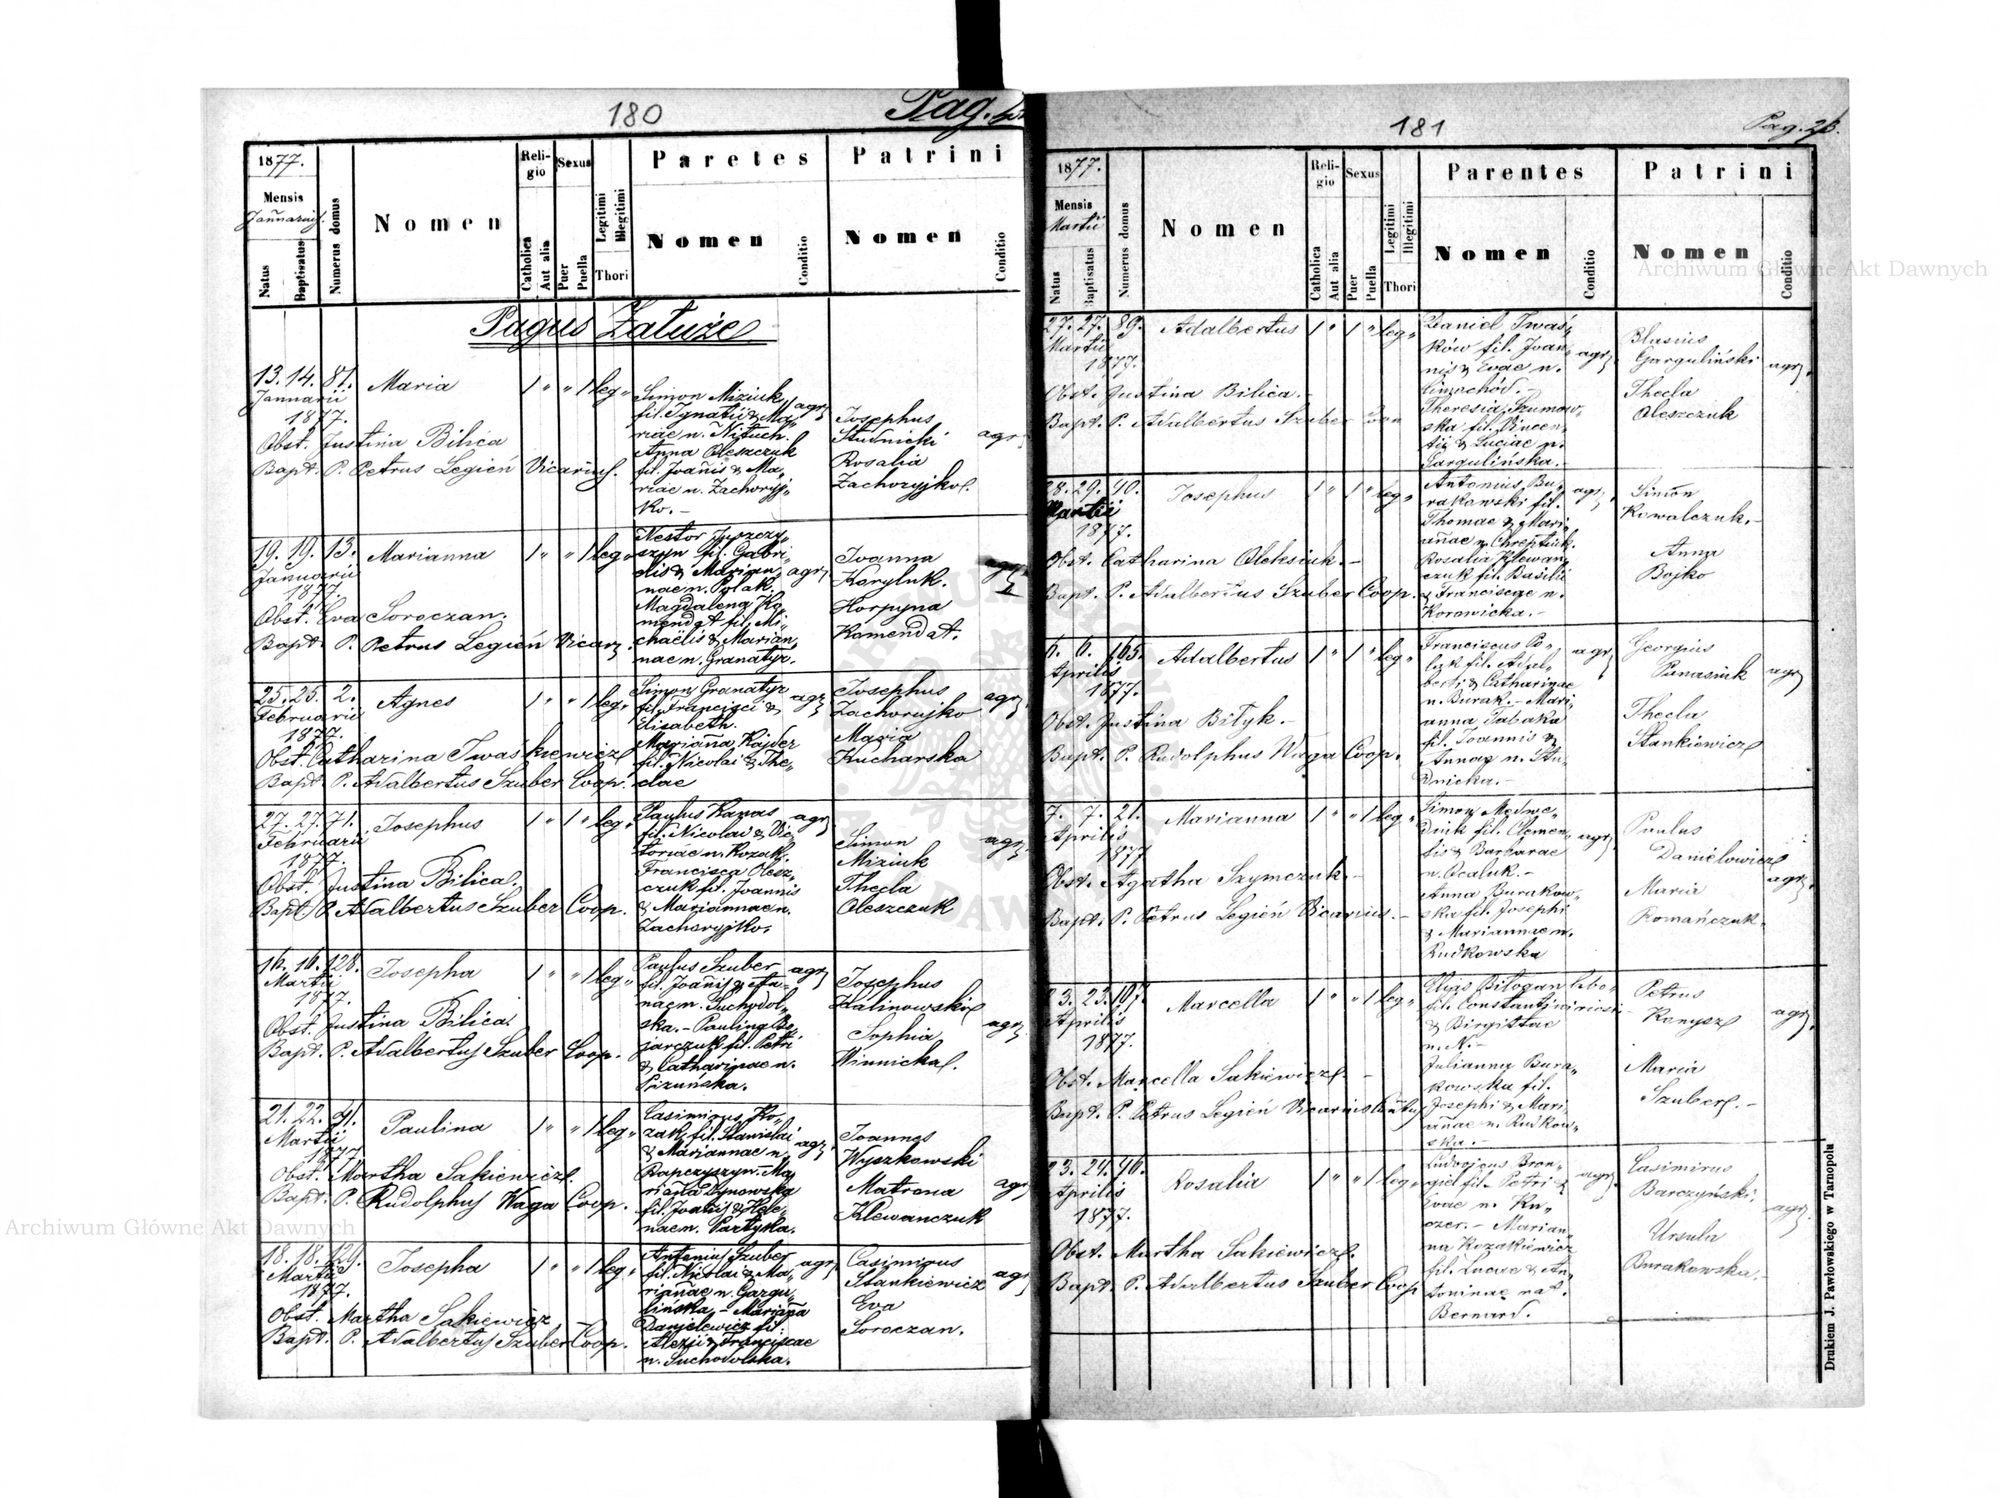 180
Pag.
1877.
Mensis
Januarii.
Natus
Baptisatus
Numerus domus
Nomen
Religio
Catholica
Aut alia
Sexus
Puer
Puella
Legitimi
Illegitimi
Thori
Paretes
Nomen
Conditio
Patrini
Nomen
Conditio
Pagus Załuże
13. 14. 81. Maria 1 " " 1 leg.
Januarii
1877.
Obst. Justina Bilica
Bapt. P. Petrus Legień Vicarius.
Simon Miziuk
fil. Ignatii & Ma-
riae n. Nituch.
Anna Oleszczuk
fil. Joannis & Ma-
riae n. Zachoryj-
ko. -
agr.
Josephus
Studnicki
Rosalia
Zachoryjko.
agr.
19. 19. 13. Marianna 1 " " 1 leg.
Januarii
1877.
Obst. Eva Soroczan.
Bapt. P. Petrus Legień Vicar.
Nestor Juszczy-
szyn fil. Gabri-
elis & Marian-
nae n. Polak.
Magdalena Ko-
mendat fil. Mi-
chaëlis & Marian-
nae n. Granatyr.
agr.
Joanna
Koryluk.
Horpyna
Komendat.
agr.
25. 25. 2. Agnes 1 " " 1 leg.
Februarii
1877.
Obst. Catharina Iwaśkiewicz
Bapt. P. Adalbertus Szuber Coop.
Simon Granatyr
fil. Francisci &
Elisabeth.
Marianna Kajder
fil. Nicolai & The-
clae
agr.
Josephus
Zachorujko
Maria
Kucharska
agr.
27. 27. 71. Josephus 1 " 1 " leg.
Februarii
1877.
Obst. Justina Bilica.
Bapt. P. Adalbertus Szuber Coop.
Paulus Karas
fil. Nicolai & Vic-
toriae n. Kozak.
Francisca Olesz-
czuk fil. Joannis
& Mariannae n.
Zachoryjko.
agr.
Simon
Miziuk
Thecla
Oleszczuk
agr.
16. 16. 128. Josepha 1 " " 1 leg.
Martii
1877.
Obst. Justina Bilica.
Bapt. P. Adalbertus Szuber Coop.
Paulus Szuber
fil. Joannis & An-
nae n. Suchodol-
ska. - Paulina Be-
jarczuk fil. Petri
& Catharinae n.
Pizuńska.
agr.
Josephus
Kalinowski
Sophia
Winnicka.
agr.
21. 22. 91. Paulina 1 " " 1 leg.
Martii
1877
Obst. Martha Sakiewicz.
Bapt. P. Rudolphus Waga Coop.
Casimirus Ko-
zak fil. Stanislai
& Mariannae n.
Rapczyszyn. Ma-
rianna Dynowska
fil. Joannis & Hele-
nae n. Partyka.
agr.
Joannes
Wyszkowski
Matrona
Klewanczuk
agr.
18. 18. 129. Josepha 1 " " 1 leg.
Martii
1877.
Obst. Martha Sakiewicz
Bapt. P. Adalbertus Szuber Coop.
Antonius Szuber
fil. Nicolai & Ma-
riannae n. Gargu-
lińska, - Marianna
Danielewicz fil.
Alexii & Franciscae
n. Suchodolska.
agr.
Casimirus
Stankiewicz
Eva
Soroczan.
agr.
181
Pag. 26.
1877.
Mensis
Martii
Natus
Baptisatus
Numerus domus
Nomen
Religio
Catholica
Aut alia
Sexus
Puer
Puella
Legitimi
Illegitimi
Thori
Parentes
Nomen
Conditio
Patrini
Nomen
Conditio
27. 27. 89. Adalbertus 1 " 1 " leg.
Martii
1877.
Obst. Justina Bilica. -
Bapt. P. Adalbertus Szuber Coop
Daniel Iwaś-
ków fil. Joan-
nis & Evae n.
Theresia Szumow-
ska fil. Vincen-
tii & Luciae n.
Gargulińska. -
agr.
Blasius
Garguliński
Thecla
Oleszczuk
agr.
28. 29. 40. Josephus 1 " 1 " leg.
Martii
1877.
Obst. Catharina Oleksiuk. -
Bapt. P. Adalbertus Szuber Coop.
Antonius Bu-
rakowski fil.
Thomae & Mari-
annae n. Chreptiuk.
Rosalia Klewan-
czuk fil. Basilii
& Franciscae n.
Korowicka. -
agr.
Simon
Kowalczuk. -
Anna
Bojko
6. 6. 165. Adalbertus 1 " 1 " leg.
Aprilis
1877.
Obst. Justina Bityk. -
Bapt. P. Rudolphus Waga Coop.
Franciscus Po-
lak fil. Adal-
berti & Catharinae
n. Burak. - Mari-
anna Tabaka
fil. Joannis &
Annae n. Stu-
dnicka. -
agr.
Georgius
Panasiuk
Thecla
Stankiewicz
agr.
7. 7. 21. Marianna 1 " " 1 leg.
Aprilis
1877
Obst. Agatha Szymczuk. -
Bapt. P. Petrus Legień Vicarius. -
Simon Medwe-
diuk fil. Clemen-
tis & Barbarae
n. Acaluk. -
Anna Burakow-
ska fil. Josephi
& Mariannae n.
Rudkowska
agr.
Paulus
Danielowicz
Maria
Romańczuk.
agr.
23. 23. 107. Marcella 1 " " 1 leg.
Aprilis
1877.
Obst. Marcella Sakiewicz. -
Bapt. P. Petrus Legień Vicarius
Elias Biłogan
fil. Constantini
& Birgittae
n. N. -
Julianna Bura-
kowska fil.
Josephi & Mari-
annae n. Rudkow-
ska. -
Petrus
Konysz
Maria
Szuber. -
agr.
23. 24. 96. Rosalia 1 " " 1 leg.
Aprilis
1877.
Obst. Martha Sakiewicz.
Bapt. P. Adalbertus Szuber Coop
Ludovicus Bron-
giel fil. Petri &
Evae n. Ku-
czer. - Marian-
na Kozakiewicz
fil. Lucae & An-
toninae nat.
Bernard.
agr.
Casimirus
Barczyński.
Ursula
Burakowska. -
agr.
Drukiem J. Pawłowskiego w Tarnopolu
Archiwum Główne Akt Dawnych
Archiwum Główne Akt Dawnych